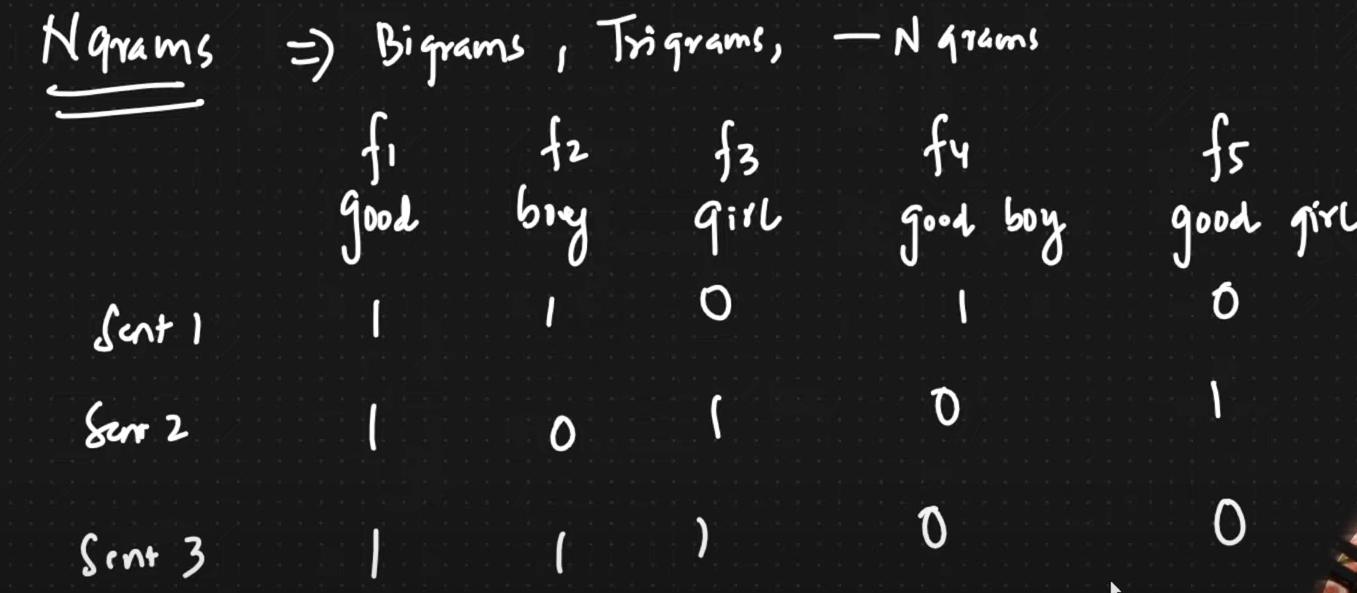 N grams ⇒ Bigrams, Trigrams, — N grams
f1 f2 f3 f4 f5
good boy girl good boy good girl
Sent 1 1 1 0 1 0
Sent 2 1 0 1 0 1
Sent 3 1 1 1 0 0